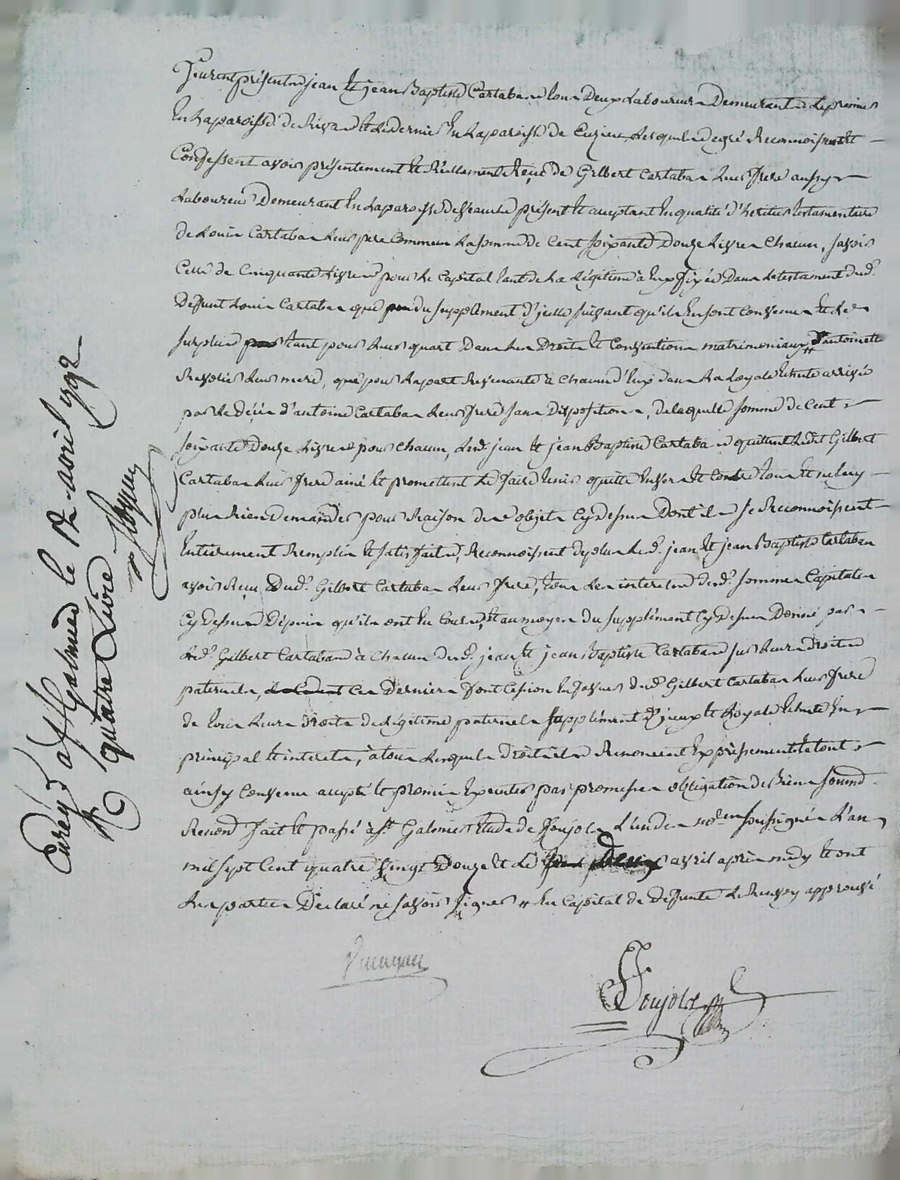 furent présents jean et jean Baptiste Cartaban tous Deux Laboureurs Demeurants Le premier
En La paroisse de Rivas et Le dernier En La paroisse de Cuzieu, Lesquels de gré Reconnoissent et
Confessent avoir présentement et Réellement Reçu de Gilbert Cartaban Leur frere aussy
Laboureur Demeurant En La paroisse de présent et acceptant En qualité d'heritier testamentaire
de Louis Cartaban Leur pere Commun La somme de Cent soixante Douze Livres Chacun, savoir
Celle de Cinquante Livres pour Le Capital tant de La Légitime à Eux fixée Dans Le testament dud.
Deffunt Louis Cartaban que du supplément d'jcelle suivant qu'ils En sont Convenus Et Le
surplus tant pour Leur quart Dans Les Droits et Constitution matrimoniaux d'antoinette
Leur mere, que pour La part Revenante à Chacun D'eux dans La Loyale Echute arrivée
par Le décès d'antoine Cartaban Leur frere sans Disposition, de laquelle somme de Cent
soixante Douze Livres pour Chacun, Lesd. jean et jean Baptiste Cartaban quittent Ledit Gilbert
Cartaban Leur frere ainé et promettent Le faire tenir quitte Envers et Contre tous et ne Luy
plus Rien demander pour Raison des objets Cy dessus Dont ils se Reconnoissent
Entierement Remplis et satisfaits, Reconnoissent de plus Lesd. jean et jean Baptiste Cartaban
avoir Reçu Dud. Gilbert Cartaban Leur frere, tous Les interets desd. sommes Capitales
Cy Dessus Depuis qu'ils ont Eu Cours, Et au moyen du supplément Cy dessus Donné par
Led. Gilbert Cartaban à Chacun desd. jean et jean Baptiste Cartaban sur Leurs Droits
paternels, Ces Derniers font Cession En faveur dud. Gilbert Cartaban Leur frere
de tous Leurs Droits de Légitime paternels supplément d'jceux et Loyale Echute En
principal et interets, à tous Lesquels Droits ils Renoncent Expressement Le tout
ainsy Convenu accepté et promis Exécuter par promesses obligation de Biens soumd.
Renond. fait et passé à st Galmier Etude de Poujols L'un des nores soussignés L'an
mil sept Cent quatre vingt Douze et Le Deux avril après midy et ont
Les parties Déclaré ne savoir signer En Capital de Deffunte approuvé
Poujols
Enreg. à st Galmier le 12 avril 1792
R quatre Livres